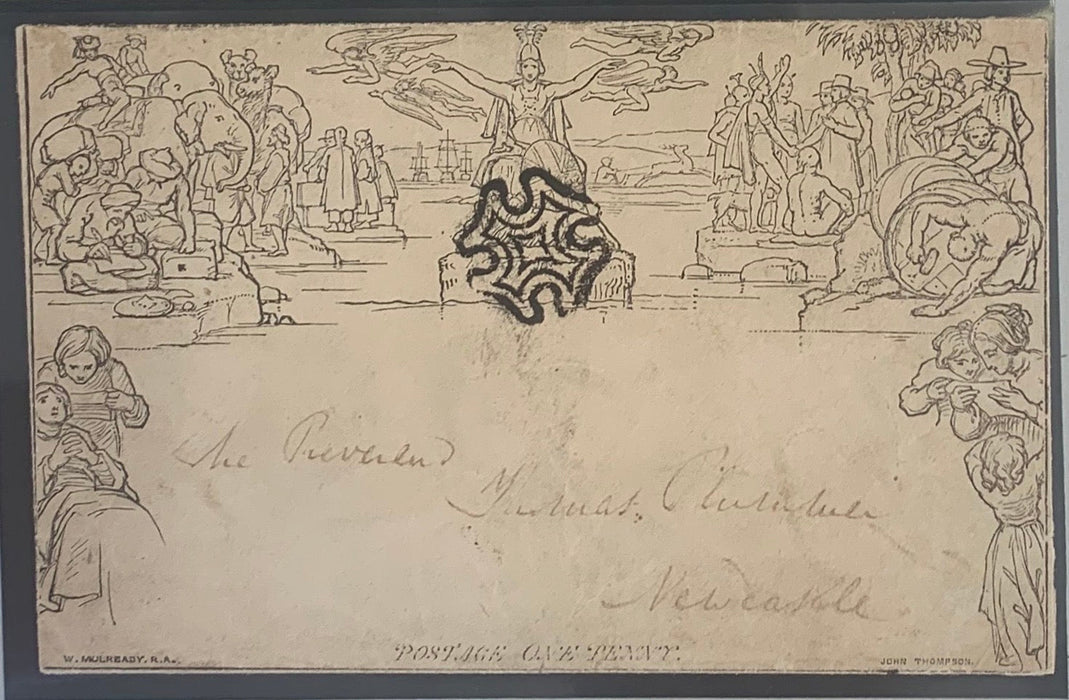 The Reverend
Thomas Plummer
Newcastle
POSTAGE ONE PENNY.
W. MULREADY, R.A.
JOHN THOMPSON.